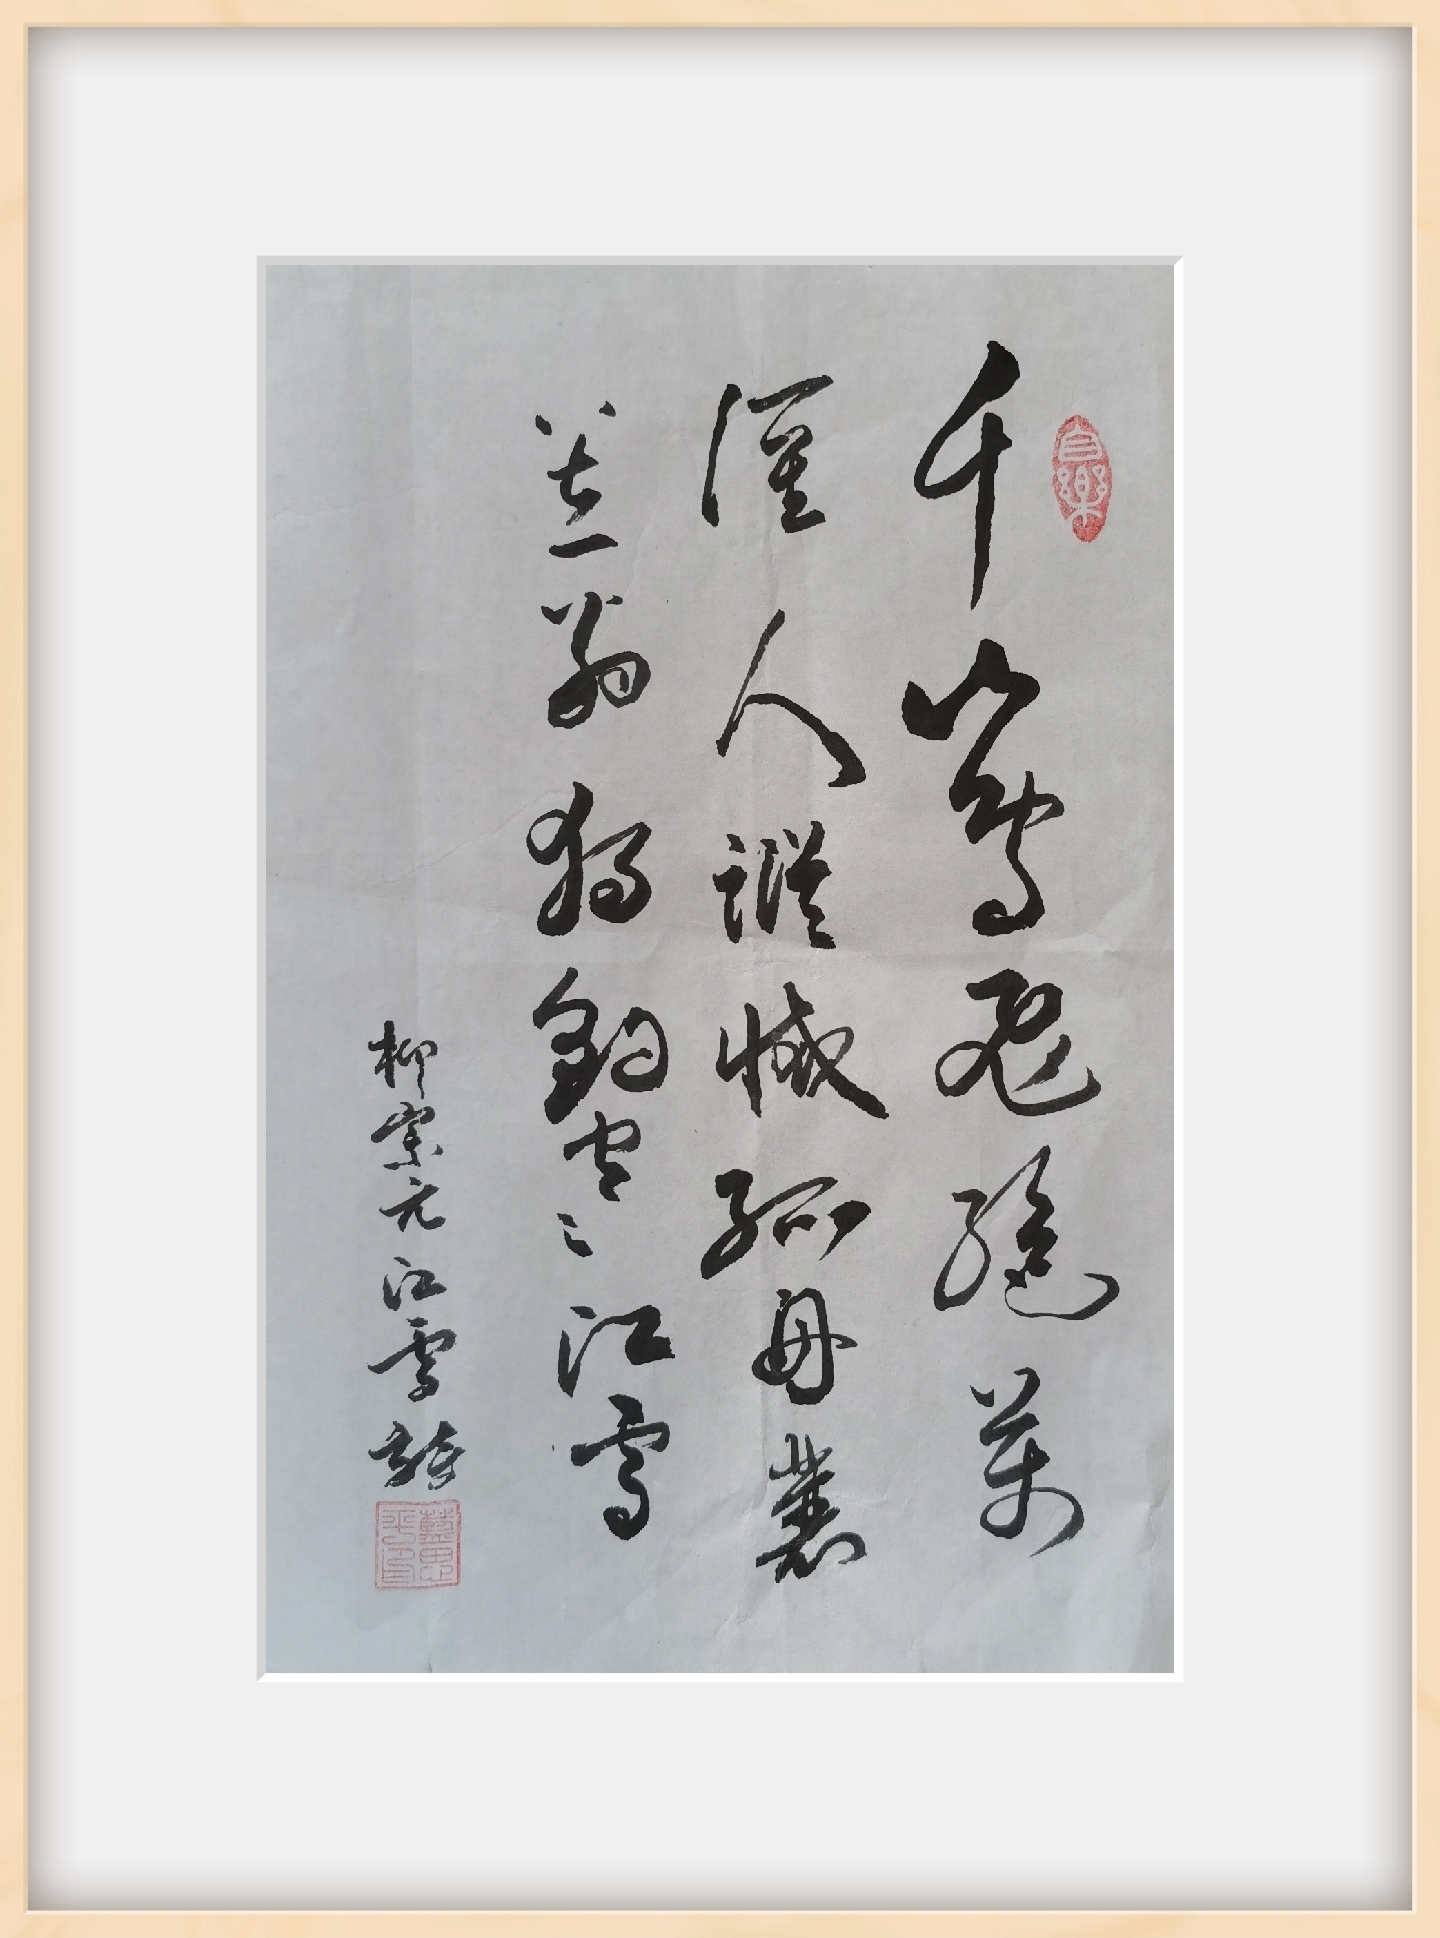 自樂
千山鳥飛絕萬
徑人蹤滅孤舟蓑
笠翁獨釣寒江雪
柳宗元江雪